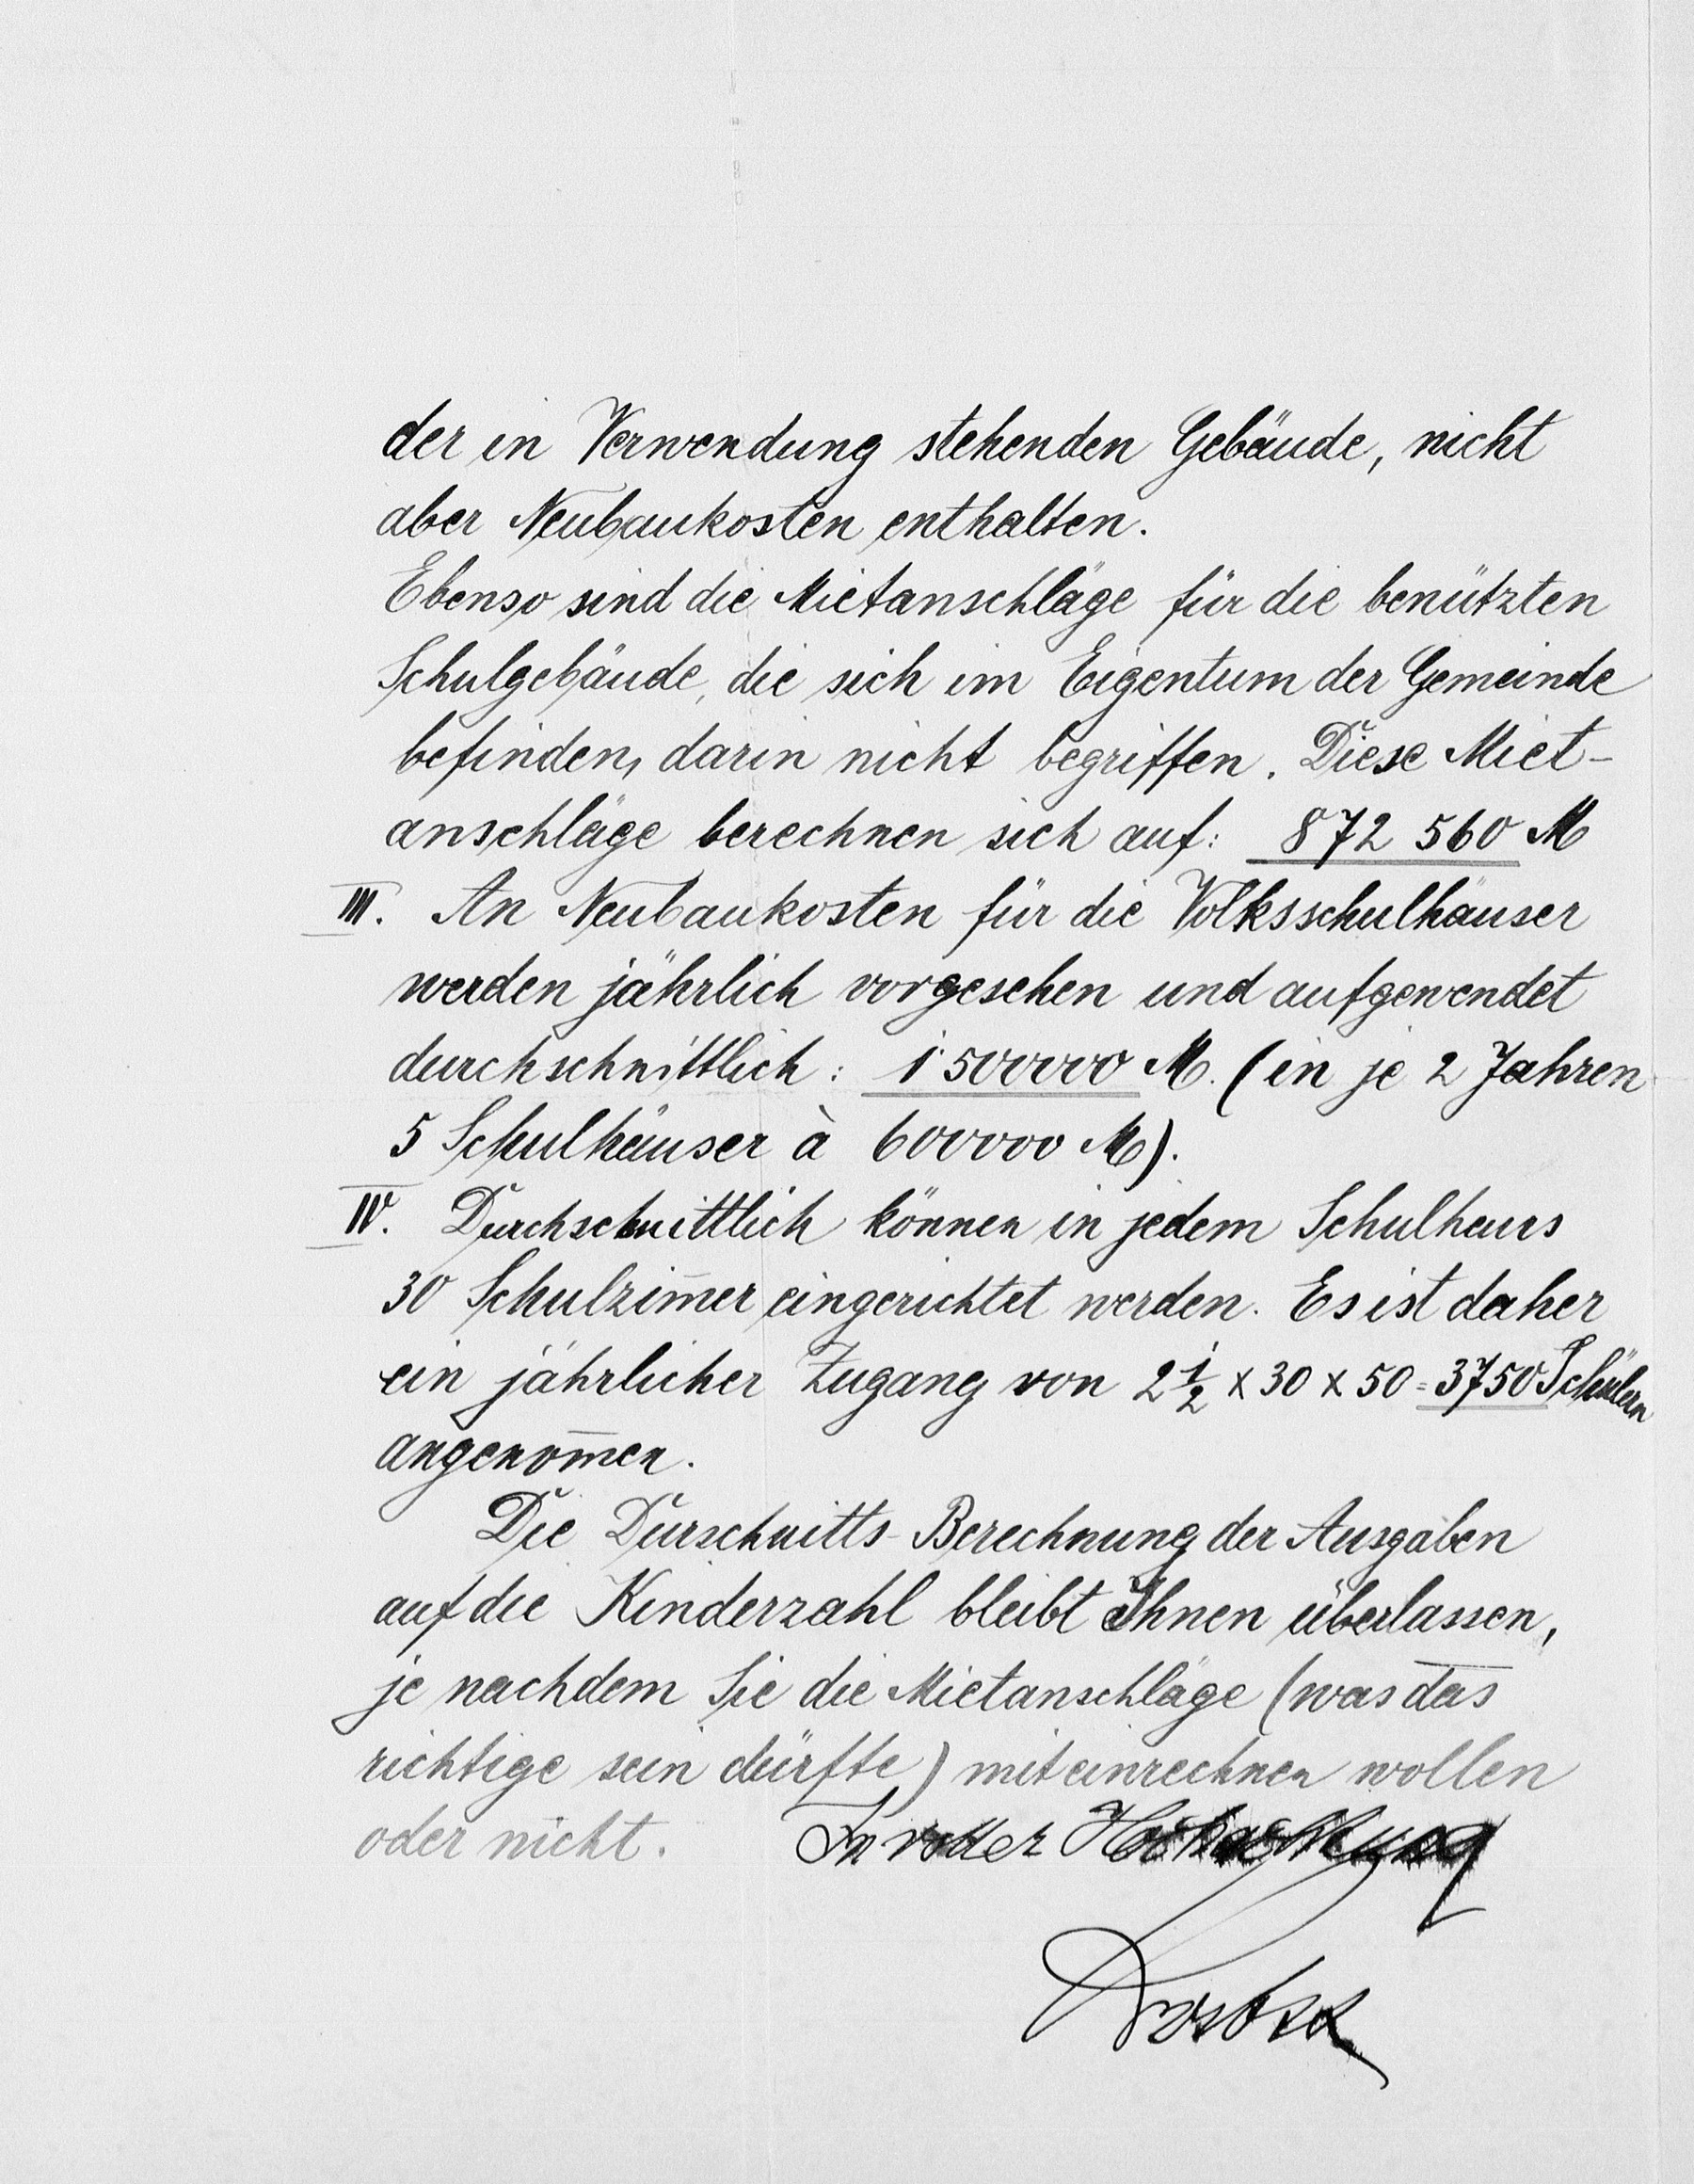 der in Verwendung stehenden Gebäude, nicht
aber Neubaukosten enthalten.
Ebenso sind die Mietanschläge für die benützten
Schulgebäude, die sich im Eigentum der Gemeinde
befinden, darin nicht begriffen. Diese Miet-
anschläge berechnen sich auf: 872 560 M
III. An Neubaukosten für die Volksschulhäuser
werden jährlich vorgesehen und aufgewendet
durchschnittlich: 1'500000 M. (in je 2 Jahren
5 Schulhäuser à 600000 M).
IV. Durchschnittlich können in jedem Schulhaus
30 Schulzim̅er eingerichtet werden. Es ist daher
ein jährlicher Zugang von 2 1/2 x 30 x 50 = 3750 Schülern
angenom̅en.
Die Durschnitts-Berechnung der Ausgaben
auf die Kinderzahl bleibt Ihnen überlassen,
je nachdem Sie die Mietanschläge (was das
richtige sein dürfte) miteinrechnen wollen
oder nicht. In voller Hochachtung